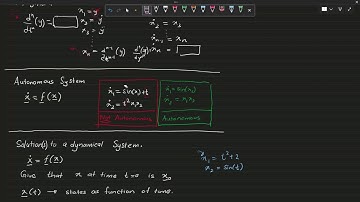 x₁ = y
dⁿ/dtⁿ (y) =
x₂ = ẏ
x₃ = ÿ
ẋ₂ = x₃
ẋₙ₋₁ = xₙ
xₙ = dⁿ⁻¹/dtⁿ⁻¹ (y)
ẋₙ =
Autonomous System
ẋ = f(x)
ẋ₁ = sin(x₁) + t
ẋ₂ = t²x₁x₂
Autonomous
ẋ₁ = sin(x₁)
ẋ₂ = x₁x₂
Autonomous
Solution(s) to a dynamical System.
ẋ = f(x)
Give that x at time t=0 is x₀
x(t) → states as function of time.
x₁ = t²+2
x₂ = sin(t)